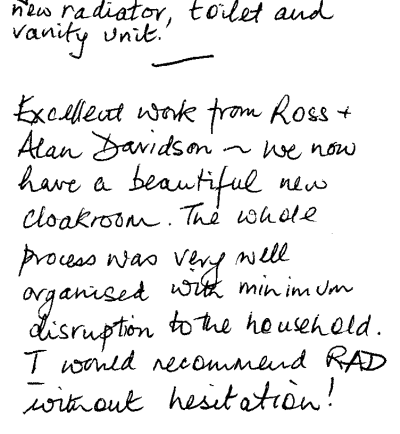 new radiator, toilet and
vanity unit.
Excellent work from Ross +
Alan Davidson ~ we now
have a beautiful new
cloakroom. The whole
process was very well
organised with minimum
disruption to the household.
I would recommend RAD
without hesitation!